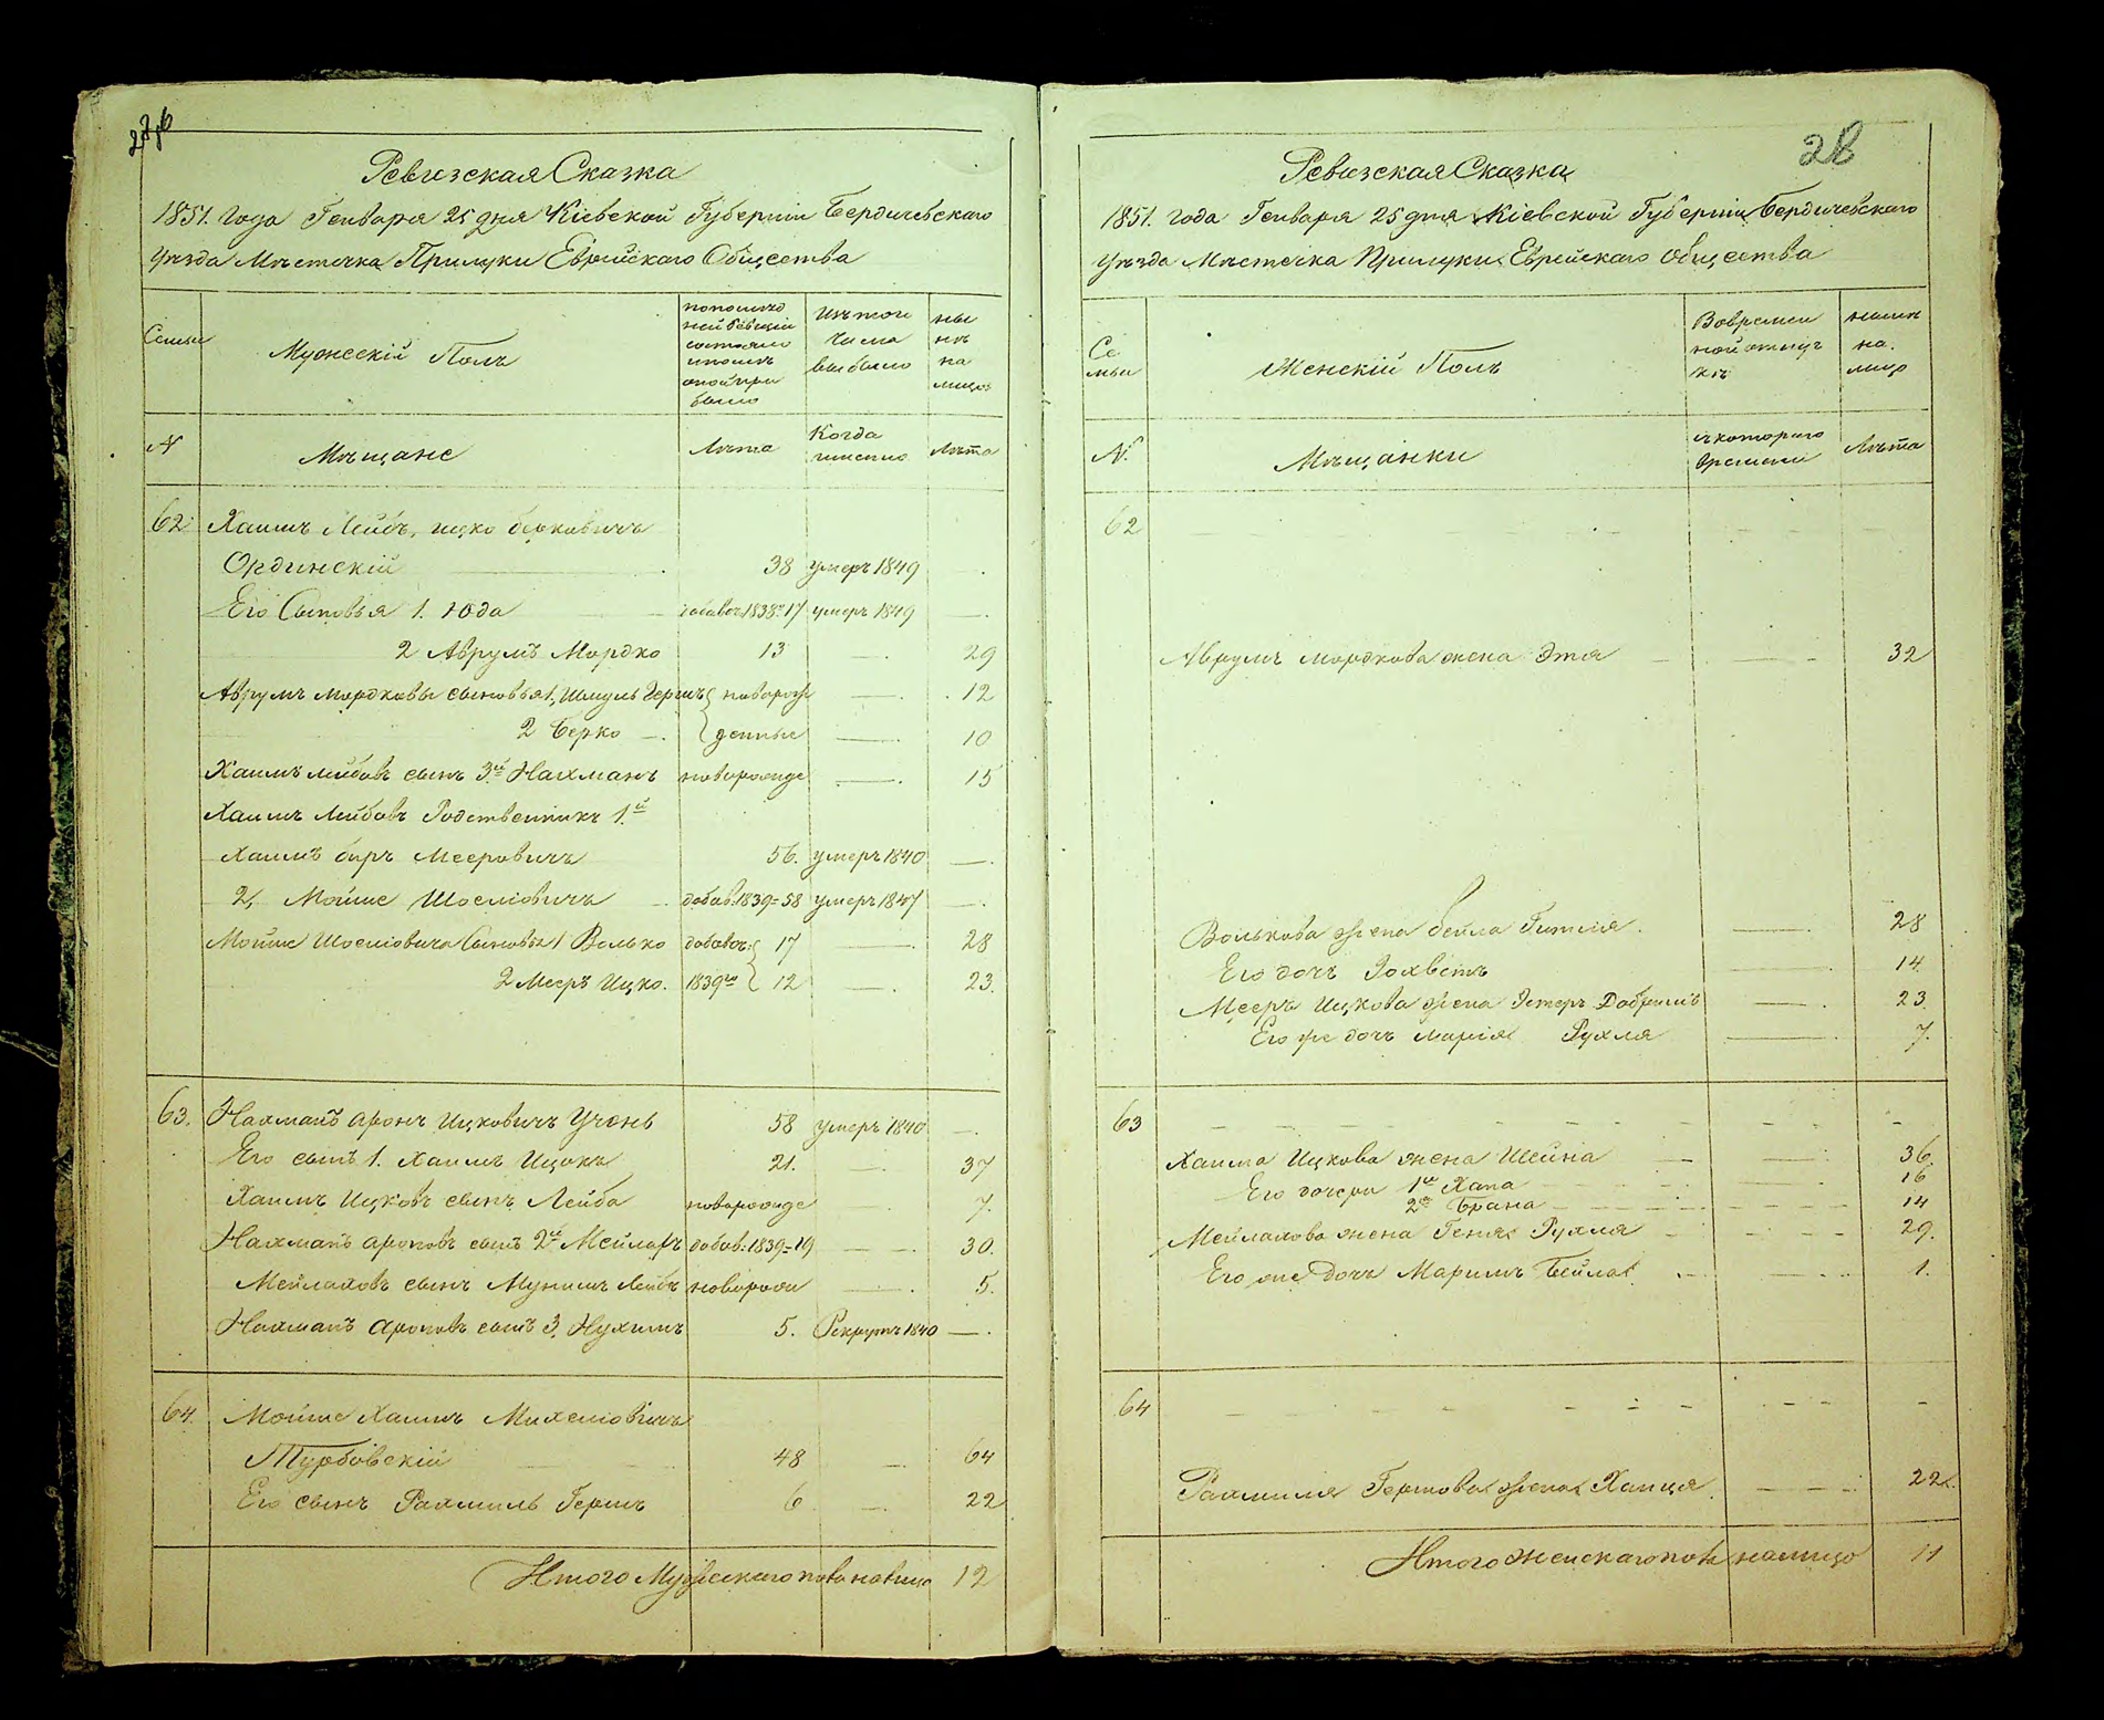 Ревизская Сказка
1851. года Генваря 25 дня Кіевской Губерніи Бердичевскаго
Уѣзда Мѣстечка Прилуки Еврейскаго Общества
Семьи
Мужескій Полъ
по послѣд
ней ревизіи
состояло
и послѣ
оной при
было
Изъ того
числа
выбыло
ны
нѣ
на
лицо
N
Мѣщане
Лѣта
Когда
именно
Лѣта
62 Хаимъ Лейбъ, ицко берковичъ
Ординскій 38 умеръ 1849
Его Сыновья 1. Юда 1838 17 умеръ 1849 —.
2 Аврумъ Мордко 13 —. 29
Аврумъ мордковы сыновья 1, Шмуль Гершъ новорож —. 12
2 Берко —. денные —. 10
Хаимъ лейбовъ сынъ 3й Нахманъ новорожде —. 15
Хаимъ Лейбовъ Родственникъ 1.й
Хаимъ беръ Мееровичъ 56. умеръ 1840 —.
2, Мойше Шоеліовичъ добав: 1839=58 умеръ 1847 —.
Мойше Шоеліовича Сыновья 1 Волько добавоч: 17 —. 28
2 Мееръ Ицко. 1839го 12 —. 23.
63. Нахманъ аронъ Ицковичъ Учень 58 умеръ 1840 —.
Его сынъ 1. Хаимъ Ицокъ 21. —. 37
Хаимъ Ицковъ сынъ Лейба новорожде —. 7.
Нахманъ ароновъ сынъ 2й Мейлахъ добав: 1839=19 — —. 30.
Мейлаховъ сынъ Мунишъ Лейбъ новорож —. 5.
Нахманъ ароновъ сынъ 3. Нухимъ 5. Рекрутъ 1840 —.
64. Мойше Хаимъ Михеліовичъ
Турбовскій 48 —. 64
Его сынъ Рахмиль Гершъ 6 —. 22
Итого Мужескаго пола налицо 12
28
Ревизская Сказка
1851. года Генваря 25 дня Кіевской Губерніи Бердичевскаго
Уѣзда Мѣстечка Прилуки Еврейскаго общества
Се
мьи
Женскій Полъ
Во времен
ной отлуч
кѣ
нынѣ
на.
лицо
N.
Мѣщанки
съ котораго
времени
Лѣта
62
Аврумъ мордкова жена Этя — — — 32
Волькова жена бейла Гитля. —. 28
Его дочь Рохветъ —. 14.
Мееръ Ицкова жена Эстеръ Добришъ —. 23.
Его же дочь марія Рухля —. 7.
63
Хаима Ицкова жена Шейна — —. 36.
Его дочери 1я Хана 16
2я Брана 14
Мейлахова жена Геня Рухля 29.
Его же Дочь Маримъ Бейла 1.
64
Рахмиля Гершова жена Ханця. 22.
Итого женскаго пола налицо 11